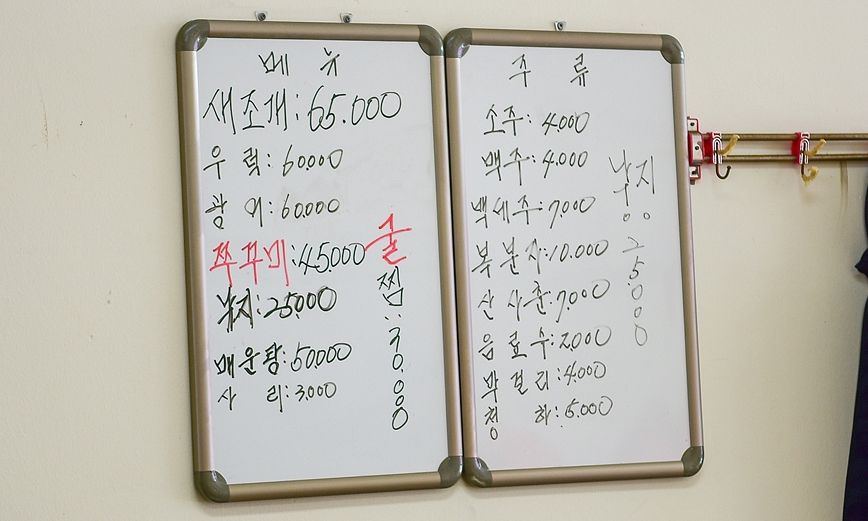 메 뉴
새조개: 65.000
우 럭: 60.000
광 어: 60.000
쭈꾸미: 45.000
낙지: 25.000
매운탕: 50.000
사 리: 3.000
굴찜: 30.000
주 류
소주: 4.000
맥주: 4.000
백세주: 7.000
복분자: 10.000
산사춘: 7.000
음료수: 2.000
막걸리: 4.000
청 하: 5.000
낙지: 25000